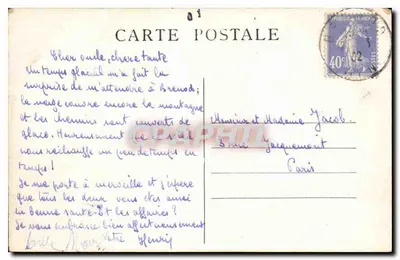 CARTE POSTALE
Cher oncle, chère tante
Un temps glacial m'a fait la
surprise de m'attendre à Brenod;
la neige couvre encore la montagne
et les chemins sont couverts de
glace. Heureusement
nous réchauffe un peu de temps en
temps!
Je me porte à merveille et j'espère
que tous les deux vous êtes aussi
en bonne santé. Et les affaires?
Je vous embrasse bien affectueusement
Votre Henri
Monsieur et Madame Jacob
5 rue Jacquemont
Paris
40